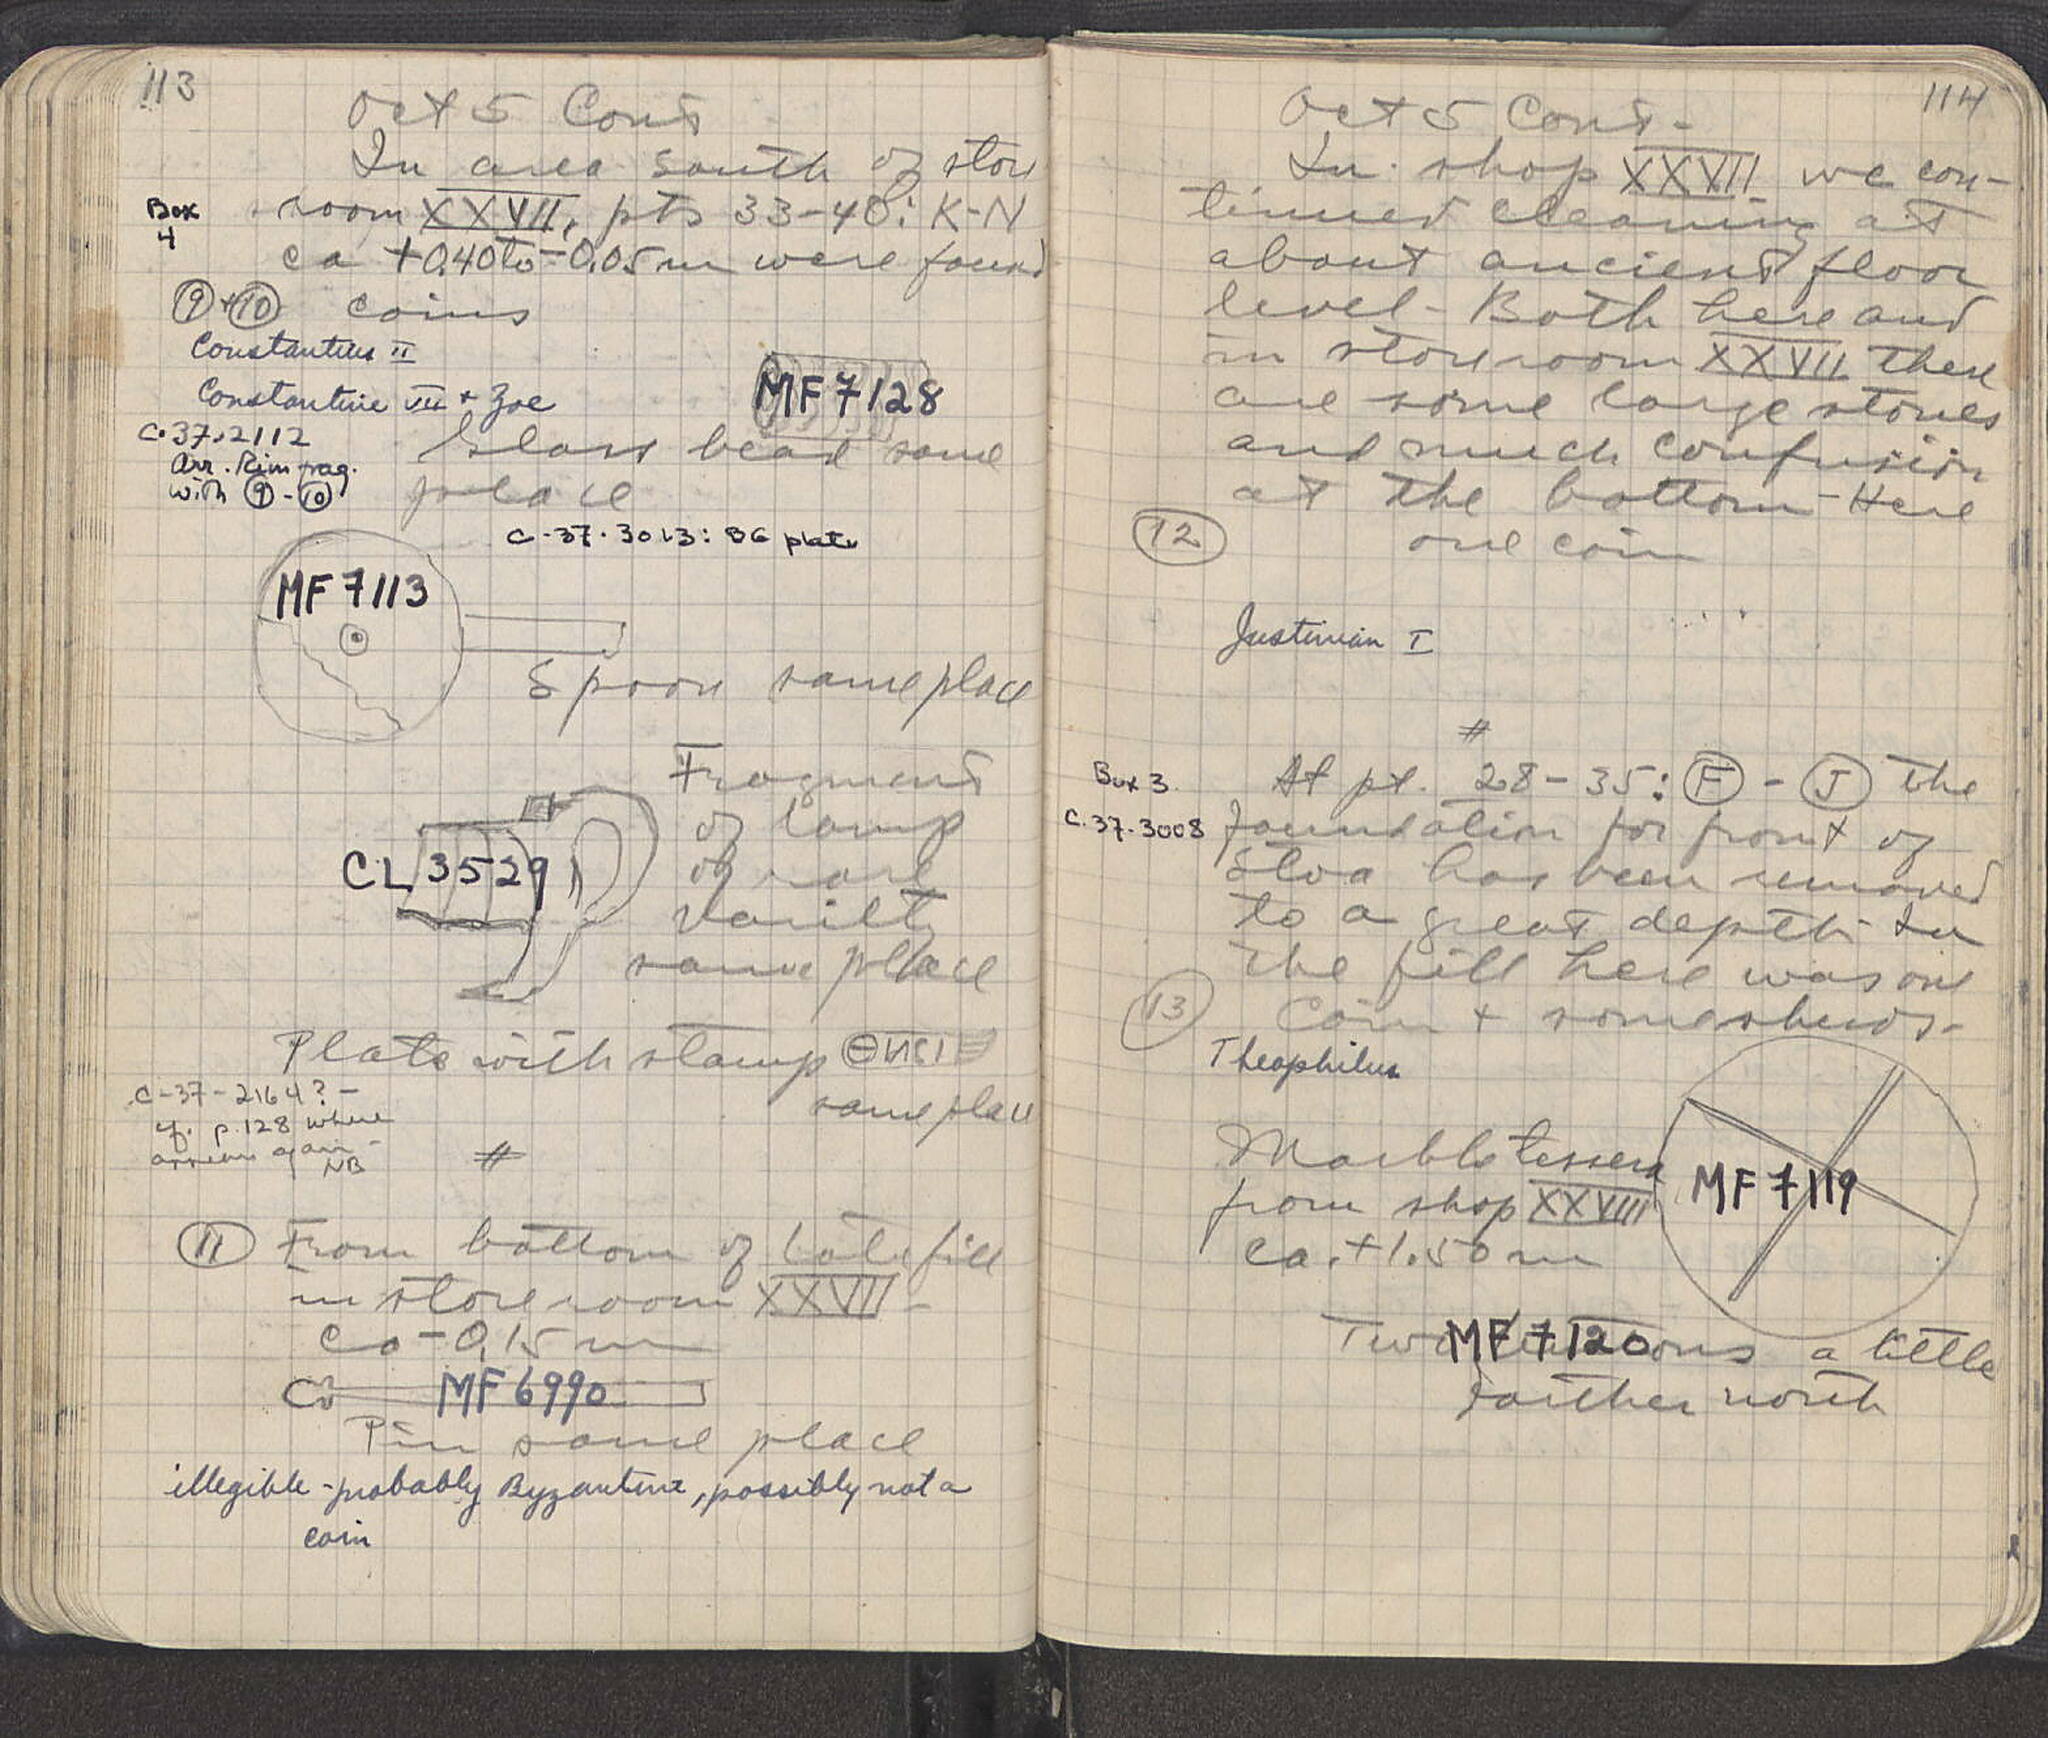 113
Oct 5 Cont
In area south of store
room XXVII, pts 33-40: K-N
Box
4
ca +0.40 to -0.05 m were found
9 + 10 coins
Constantius II
Constantine VII + Zoe
MF 7128
C.37.2112
Arr. Rim frag.
with 9 - 10
Glass bead same
place
C-37-3013: BG plate
MF 7113
Spoon same place
Fragment
of lamp
of rare
variety
same place
CL 3529
Plate with stamp
same place
C-37-2164? -
cf. p.128 where
again -
NB
#
11 From bottom of late fill
in storeroom XXVII -
Ca -0.15 m
MF 6990
Pin same place
illegible - probably Byzantine, possibly not a
coin
114
Oct 5 Cont -
In shop XXVII we con-
tinued cleaning at
about ancient floor
level - Both here and
in storeroom XXVII there
are some large stones
and much confusion
at the bottom - Here
12 one coin
Justinian I
#
Box 3
C.37-3008
At pt. 28-35: F - J the
foundation for front of
Stoa has been removed
to a great depth - In
the fill here was one
13 coin + some sherds -
Theophilus
Marble tessera
from shop XXVIII
ca. +1.50 m
MF 7119
Two MF 7120 a little
farther north